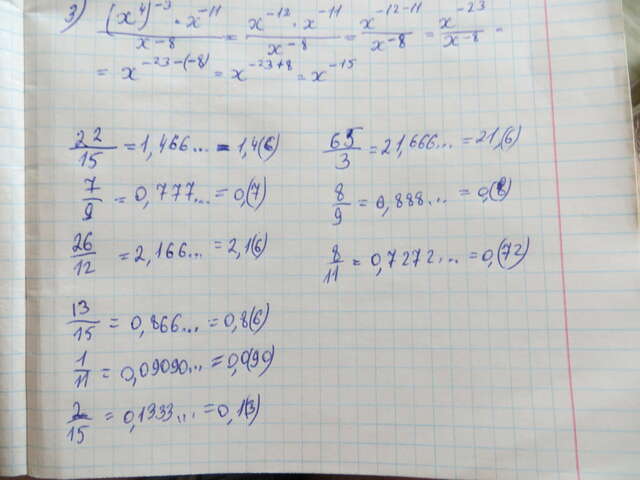 3) (x⁴)⁻³ · x⁻¹¹ / x⁻⁸ = x⁻¹² · x⁻¹¹ / x⁻⁸ = x⁻¹²⁻¹¹ / x⁻⁸ = x⁻²³ / x⁻⁸ =
= x⁻²³⁻⁽⁻⁸⁾ = x⁻²³⁺⁸ = x⁻¹⁵
22/15 = 1,466... = 1,4(6)
7/9 = 0,777... = 0,(7)
26/12 = 2,166... = 2,1(6)
13/15 = 0,866... = 0,8(6)
1/11 = 0,09090... = 0,0(90)
2/15 = 0,1333... = 0,1(3)
65/3 = 21,666... = 21,(6)
8/9 = 0,888... = 0,(8)
8/11 = 0,7272... = 0,(72)